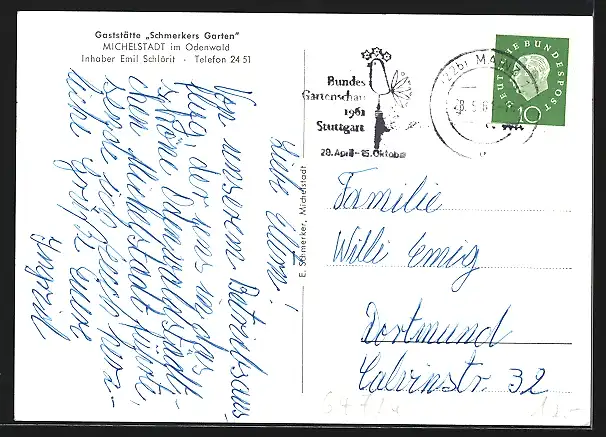 Gaststätte „Schmerkers Garten"
MICHELSTADT im Odenwald
Inhaber Emil Schlörit · Telefon 24 51
Liebe Eltern!
Von unserem Betriebsaus-
flug, der uns in das
schöne Odenwaldstädt-
chen Michelstadt führt,
sende ich Euch herz-
liche Grüße Eure
Ingrid
E. Schmerker, Michelstadt
Bundes
Gartenschau
1961
Stuttgart
28. April - 15. Oktober
DEUTSCHE BUNDESPOST
10
Familie
Willi Emig
Dortmund
Calvinstr. 32